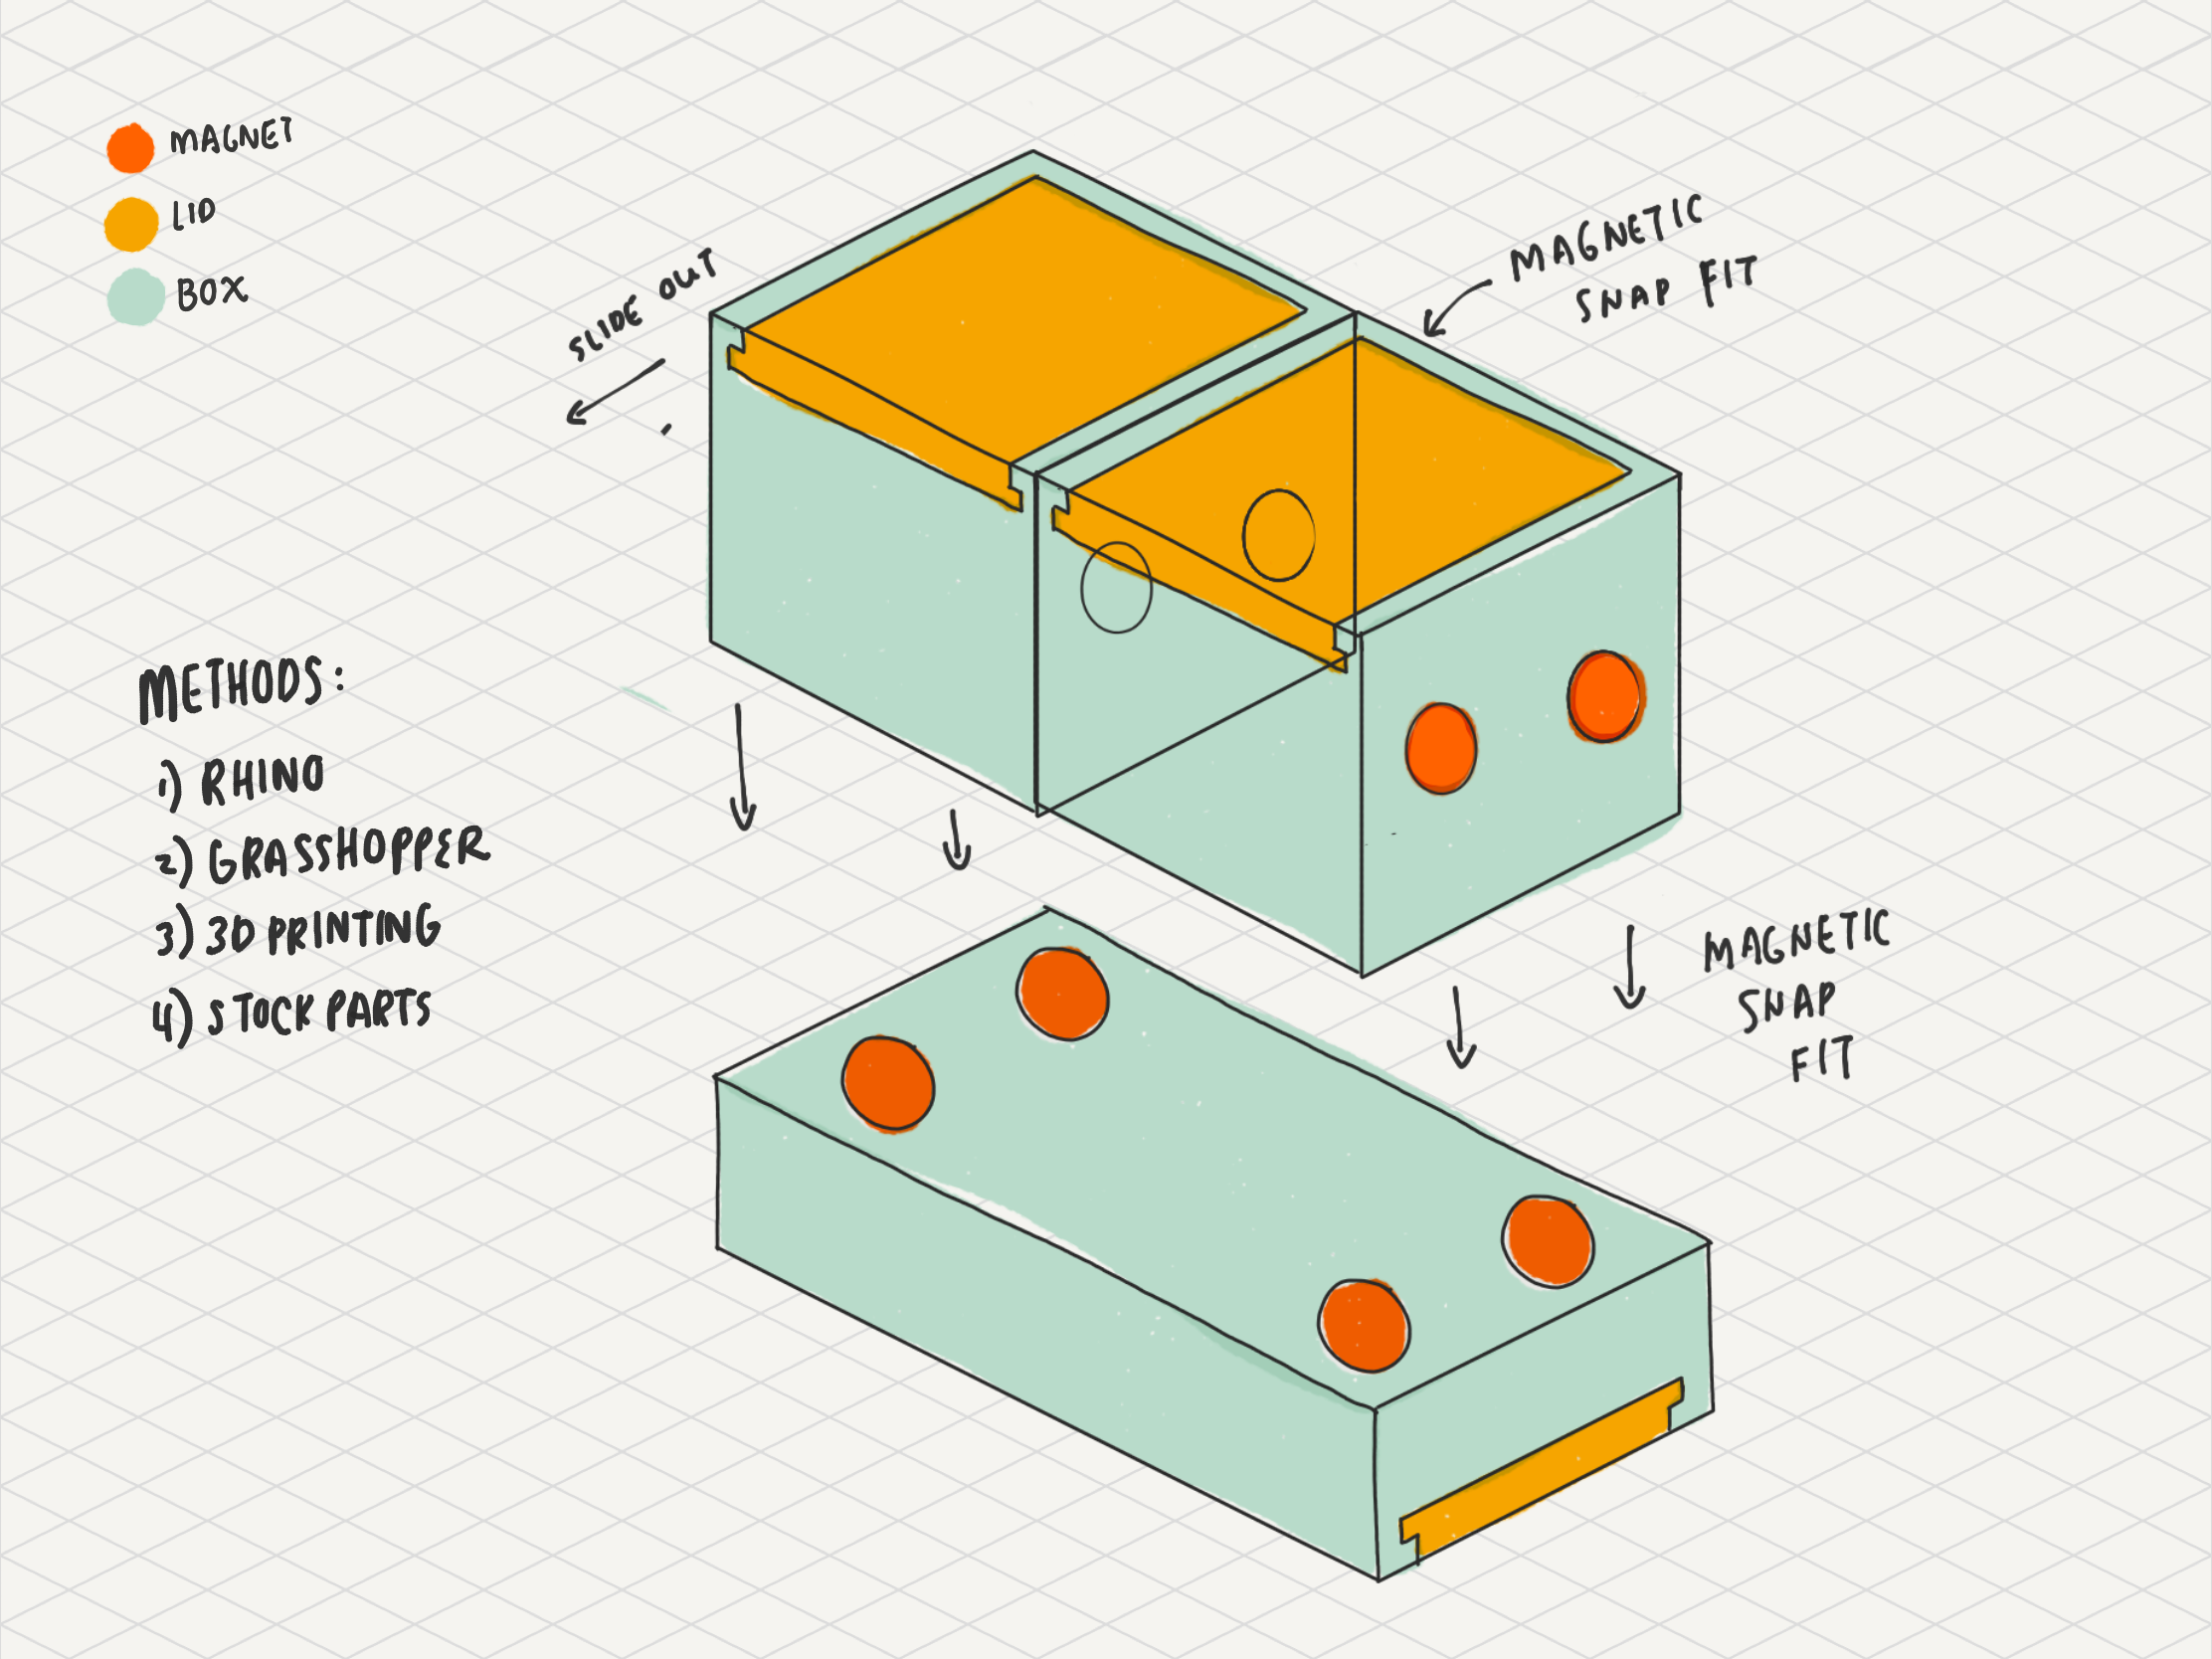 MAGNET
LID
BOX
SLIDE OUT
MAGNETIC
SNAP FIT
METHODS:
1) RHINO
2) GRASSHOPPER
3) 3D PRINTING
4) STOCK PARTS
MAGNETIC
SNAP
FIT